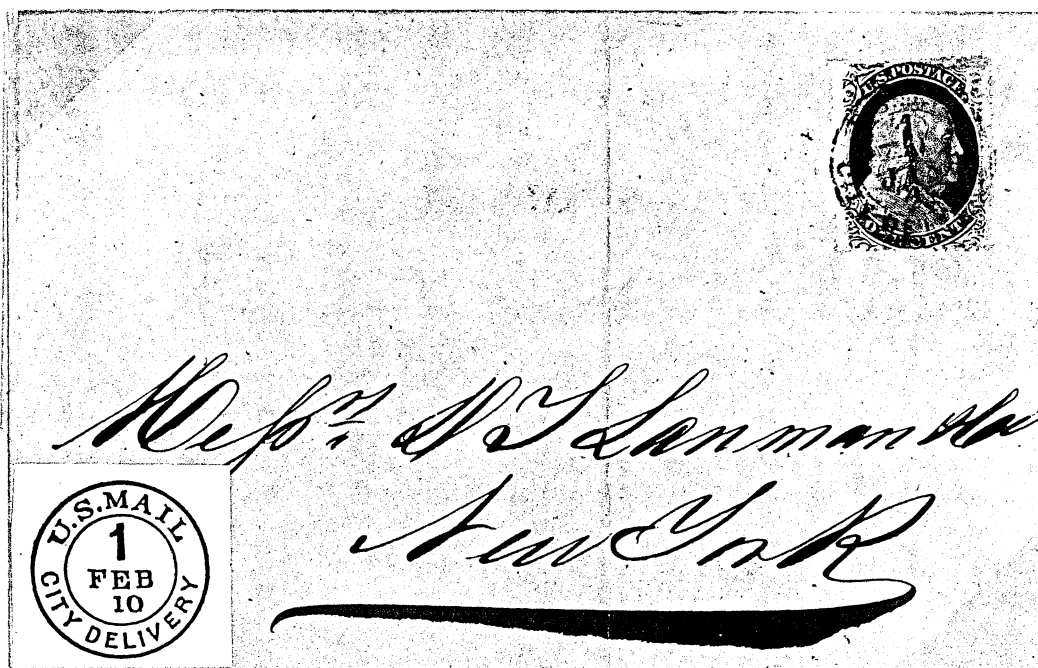 U.S. POSTAGE
ONE CENT
Messrs D T Lanman & Co
New York
U.S. MAIL
1
FEB
10
CITY DELIVERY